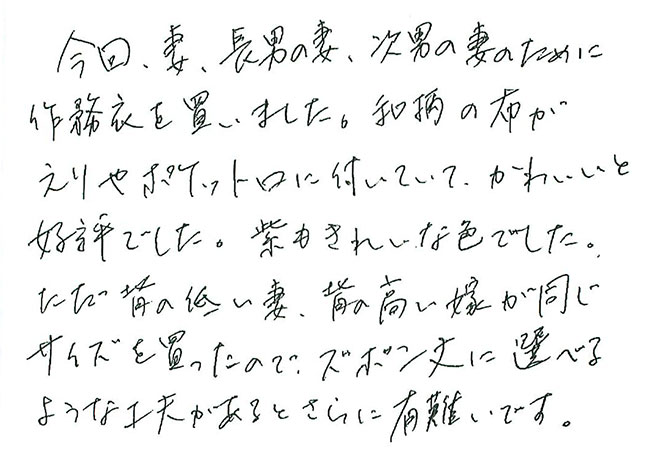 今回、妻、長男の妻、次男の妻のために
作務衣を買いました。和柄の布が
えりやポケット口に付いていて、かわいいと
好評でした。紫もきれいな色でした。
ただ背の低い妻、背の高い嫁が同じ
サイズを買ったので、ズボン丈に選べる
ような工夫があるとさらに有難いです。